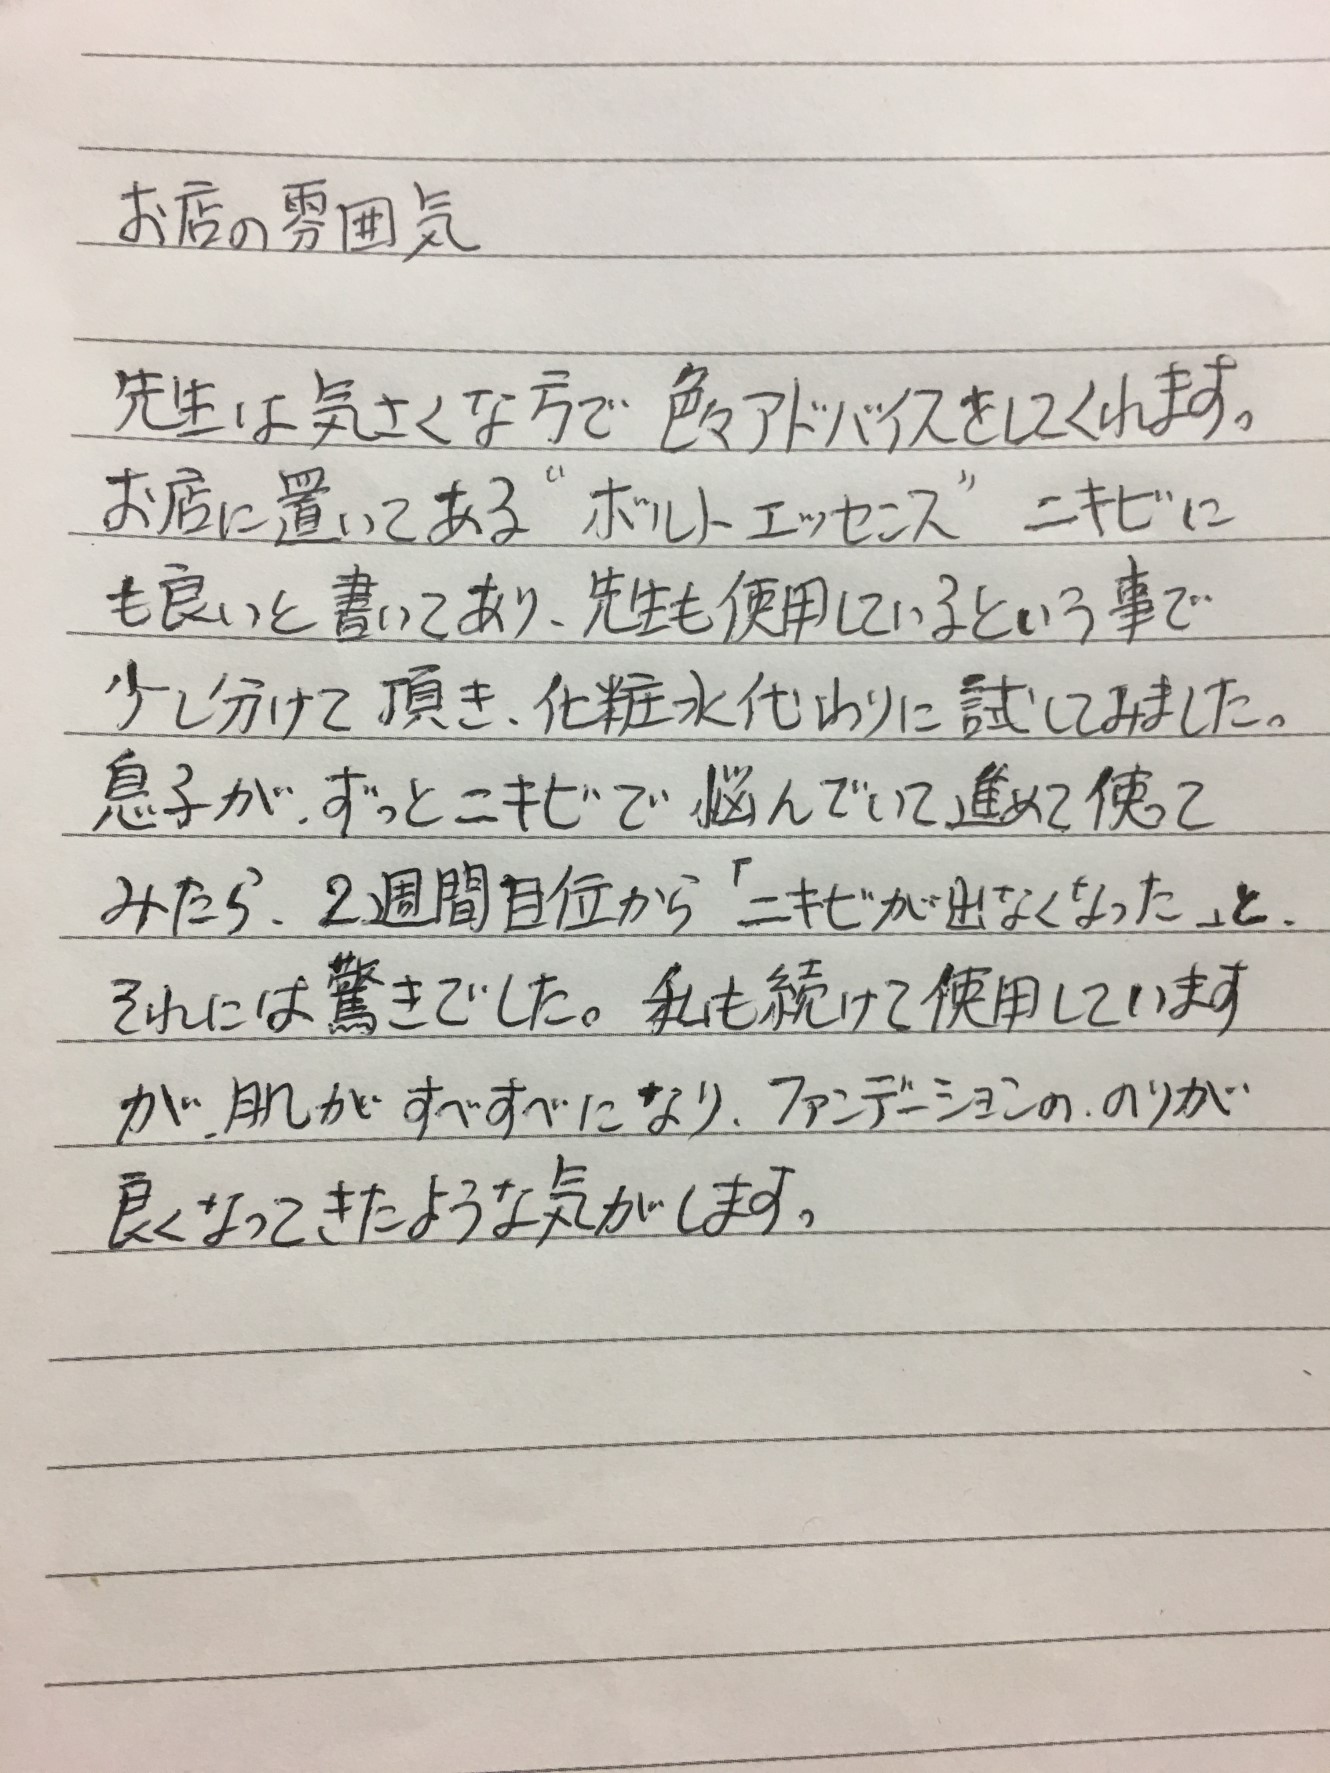 お店の雰囲気
先生は気さくな方で 色々アドバイスをしてくれます。
お店に置いてある“ボルトエッセンス” ニキビに
も良いと書いてあり、先生も使用しているという事で
少し分けて頂き、化粧水代わりに試してみました。
息子が、ずっとニキビで悩んでいて進めて使って
みたら、2週間目位から「ニキビが出なくなった」と、
それには驚きでした。私も続けて使用しています
が、肌がすべすべになり、ファンデーションの、のりが
良くなってきたような気がします。